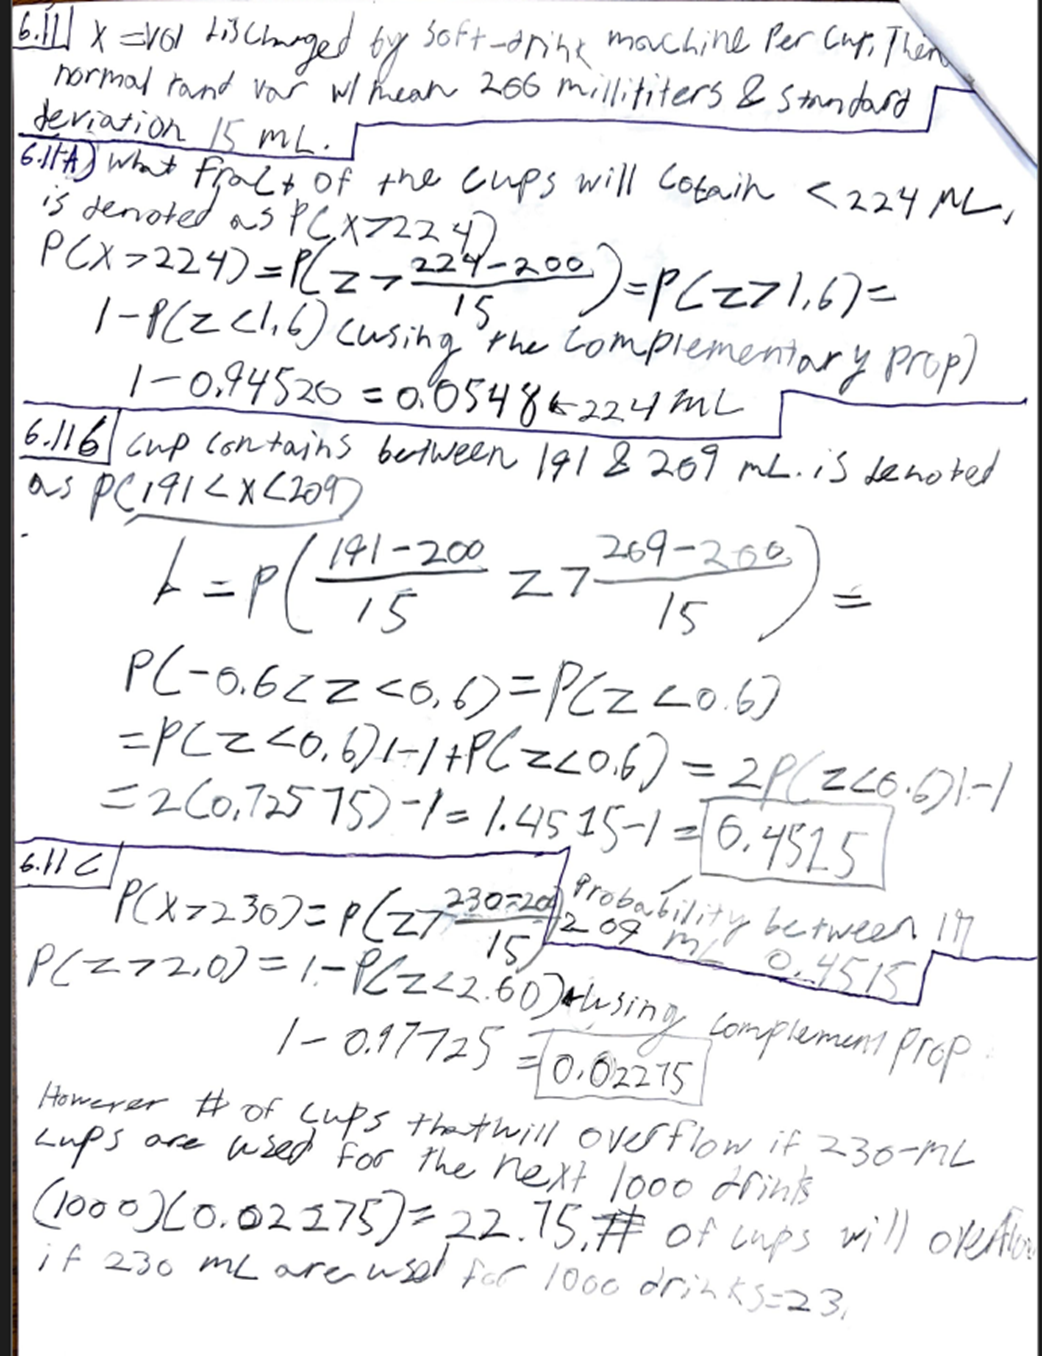 6.11 X = vol discharged by soft-drink machine Per Cup. Then
normal rand var w/ mean 200 millititers & standard
deviation 15 mL.
6.11A) What Fract of the cups will Cotain < 224 ML,
is denoted as P(X>224)
P(X>224)=P(Z>(224-200)/15)=P(Z>1.6)=
1-P(Z<1.6) (using the Complementary prop)
1-0.94520 = 0.0548 ← 224 mL
6.11b cup contains between 191 & 209 mL. is denoted
as P(191<X<209)
= P((191-200)/15 Z > (209-200)/15) =
P(-0.6<Z<0.6)=P(Z<0.6)
=P(Z<0.6)1-1+P(Z<0.6) = 2P(Z<0.6)1-1
=2(0.72575)-1=1.4515-1= 0.4515
6.11 C
P(X>230)=P(Z>(230-200)/15)
Probability between 19
209 mL 0.4515
P(Z>2.0)=1-P(Z<2.00) using complement Prop
1-0.97725 = 0.02275
However # of cups that will overflow if 230-mL
cups are used for the next 1000 drinks
(1000)(0.02275)=22.75. # of cups will overflow
if 230 mL are used for 1000 drinks=23.